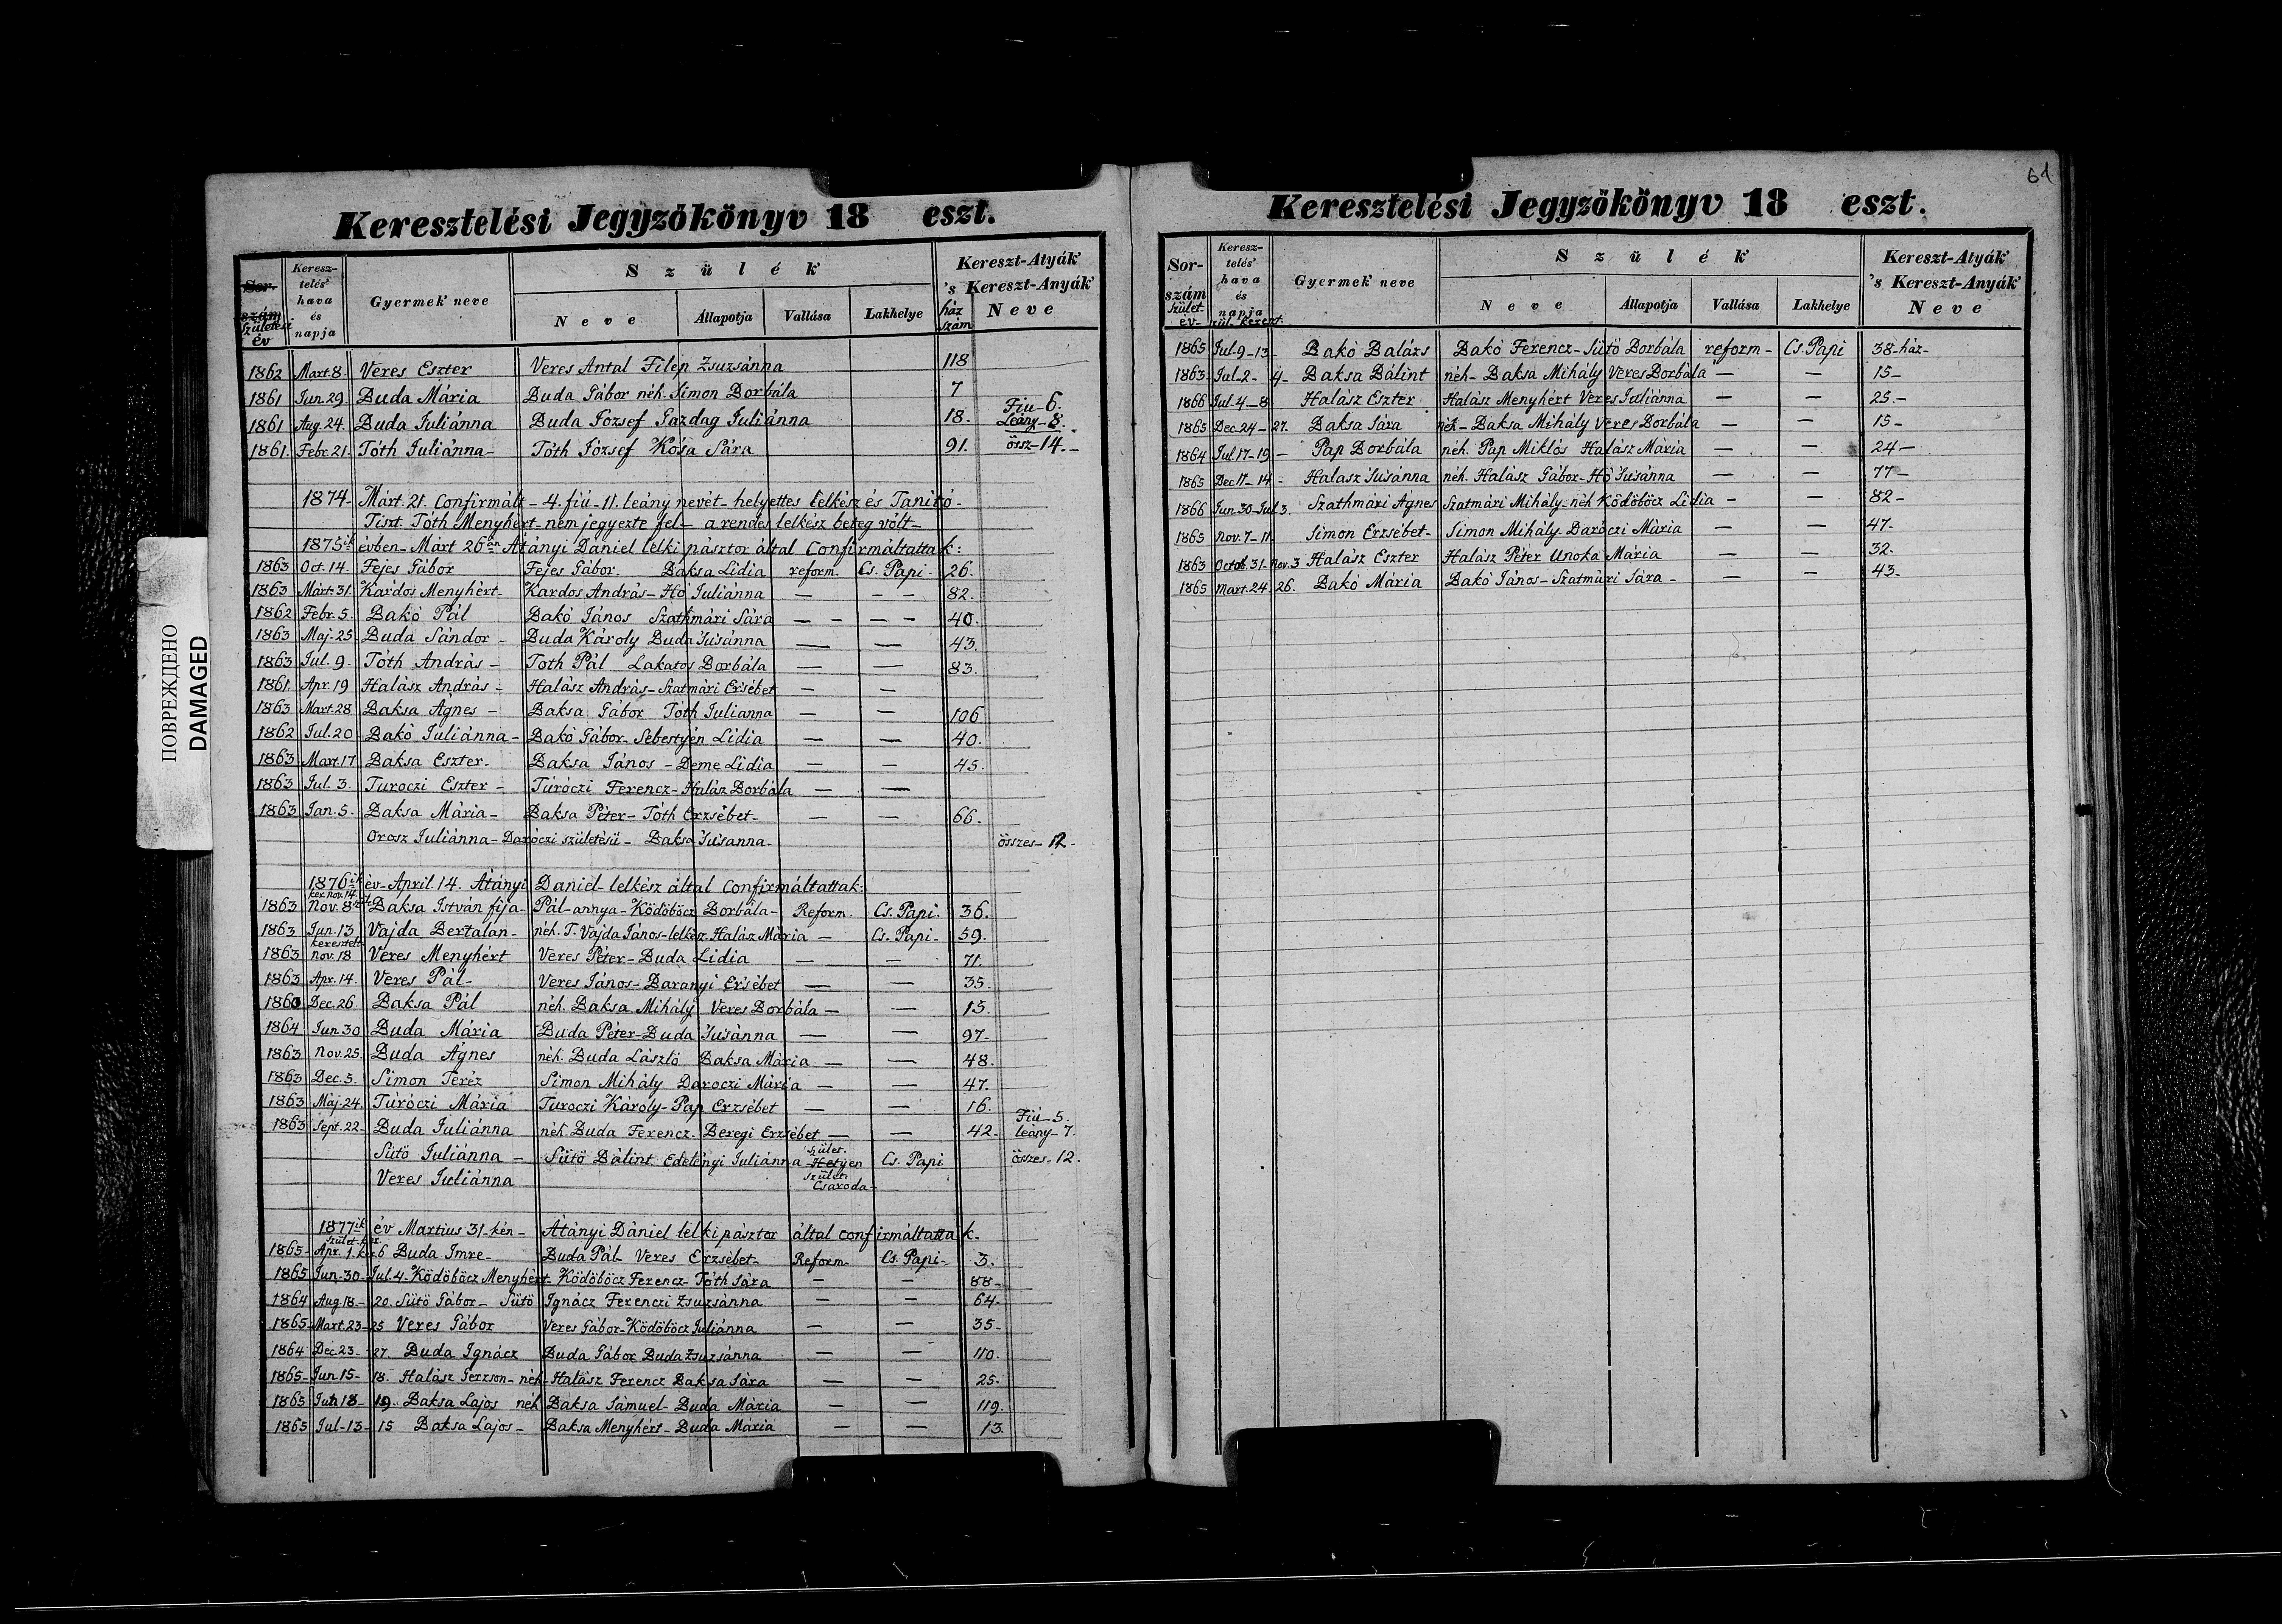 61
ПОВРЕЖДЕНО
DAMAGED
Keresztelési Jegyzőkönyv 18 eszt.
Sor-szám születési év
Keresztelés' hava és napja
Gyermek neve
Szülék
Neve
Állapotja
Vallása
Lakhelye
Kereszt-Atyák 's Kereszt-Anyák Neve
ház szám
1862 Mart. 8. Veres Eszter Veres Antal Filep Zsuzsánna 118
1861 Jun. 29. Buda Mária Buda Gábor néh. Simon Borbála 7
1861 Aug. 24. Buda Juliánna Buda József Gazdag Juliánna 18. Fiu-6. Leány-8.
1861. Febr. 21. Tóth Juliánna- Tóth József Kósa Sára 91. össz-14.-
1874- Márt. 21. Confirmált - 4. fiú - 11. leány nevét - helyettes lelkész és Tanító-
Tiszt. Tóth Menyhért - nem jegyezte fel - a rendes lelkész beteg vólt-
1875ik évben - Márt 26án Atányi Dániel lelki pásztor által Confirmáltattak:
1863 Oct. 14. Fejes Gábor Fejes Gábor. Baksa Lidia reform. Cs. Papi- 26.
1863 Márt. 31. Kardos Menyhért- Kardos András - Hó Juliánna — — — 82.
1862 Febr. 5. Bakó Pál Bakó János Szathmári Sára — — — — 40.
1863 Maj. 25 Buda Sándor - Buda Károly Buda Susánna — — 43.
1863 Jul. 9. Tóth András - Toth Pál Lakatos Borbála — — 83.
1861. Apr. 19 Halász András - Halász András - Szatmári Ersébet — —
1863 Mart. 28 Baksa Ágnes - Baksa Gábor Tóth Julianna — — 106
1862 Jul. 20 Bakó Juliánna - Bakó Gábor - Sebestyén Lidia — — 40.
1863 Mart. 17 Baksa Eszter- Baksa János - Deme Lidia — — 45.
1863 Jul. 3. Turoczi Eszter - Túróczi Ferencz - Halász Borbála — —
1863 Jan. 5. Baksa Mária- Baksa Péter - Tóth Erzsébet- — — 66.
Orosz Juliánna - Daróczi születésü - Baksa Susanna- összes - 12-
1876ik év - April. 14. Atányi Daniel - lelkész által Confirmáltattak:
1863 ker. nov. 14 Nov. 8 Baksa István fija - Pál - annya - Ködöböcz Borbála - Reform. Cs. Papi. 36.
1863 Jun. 13 Vajda Bertalan- néh. T. Vajda János - lelkész. Halász Mária — Cs. Papi- 59.
1863 keresztelt nov. 18 Veres Menyhért Veres Péter - Buda Lidia — — 71.
1863 Apr. 14. Veres Pál- Veres János - Baranyi Ersébet — — 35.
1860 Dec. 26. Baksa Pál néh. Baksa Mihály Veres Borbála — — 15.
1864 Jun. 30 Buda Mária Buda Péter - Buda Susánna — — 97-
1863 Nov. 25. Buda Ágnes néh. Buda László Baksa Mária — — 48.
1863 Dec. 5. Simon Teréz Simon Mihály Daroczi Mária — — 47.
1863 Máj. 24. Túróczi Mária Turoczi Károly - Pap Erzsébet — — 16.
1863 Sept. 22- Buda Juliánna néh. Buda Ferencz. Beregi Erzsébet — — 42- Fiú - 5. leány - 7.
Sütö Juliánna - Sütö Bálint Edelényi Juliánna szület. Hetyen Cs. Papi összes. 12.
Veres Juliánna szület. Csaroda-
1877ik év Martius 31-kén - Átányi Dániel lelki pásztor által confirmáltattak.
1865- szület. ker. Apr. 1. ker. 6 Buda Imre- Buda Pál - Veres Erzsébet- Reform- Cs. Papi- 3.
1865 Jun. 30. Jul. 4- Ködöböcz Menyhért - Ködöböcz Ferencz - Tóth Sára — — 88-
1864 Aug. 18.- 20. Sütö Gábor - Sütö Ignácz Ferenczi Zsuzsánna — — 64-
1865 Mart. 23-25 Veres Gábor Veres Gábor - Ködöböcz Juliánna — — 35-
1864 Dec. 23- 27. Buda Ignácz Buda Gábor Buda Zsuzsánna — — 110.
1865- Jun. 15- 18. Halász Gerzson - néh - Halász Ferencz Baksa Sára — — 25-
1865 18- 19. Baksa Lajos néh Baksa Sámuel - Buda Mária — — 119.
1865 Jul - 13- 15 Baksa Lajos - Baksa Menyhért - Buda Mária — — 13.
Keresztelési Jegyzőkönyv 18 eszt.
Sor-szám Szület. év-
Keresztelés' hava és napja szül. kereszt.
Gyermek neve
Szülék
Neve
Állapotja
Vallása
Lakhelye
Kereszt-Atyák 's Kereszt-Anyák Neve
1865 Jul. 9 - 13 - Bakó Balázs Bakó Ferencz - Sütö Borbála reform - Cs. Papi 38 - ház-
1863 Jul. 2 - 4 - Baksa Bálint néh - Baksa Mihály Veres Borbála — — 15-
1866 Jul. 4 - 8 Halász Eszter Halász Menyhért Veres Juliánna — — 25.-
1865 Dec. 24 - 27. Baksa Sára néh - Baksa Mihály Veres Borbála — — 15-
1864 Jul. 17 - 19 - Pap Borbála néh. Pap Miklós Halász Mária — — 24-
1865 Dec. 11 - 14 - Halasz Susánna néh. Halász Gábor - Hó Susánna — — 77-
1866 Jun. 30 - Jul 3. Szathmári Ágnes Szatmári Mihály - néh Ködöböcz Lidia — — 82-
1865 Nov. 7 - 11. Simon Erzsébet- Simon Mihály Daróczi Mária — — 47-
1863 Octob. 31 - Nov. 3 Halász Eszter Halász Péter Unoka Mária — — 32.
1865 Mart. 24 26. Bakó Mária Bakó János - Szatmári Sára - — — 43-